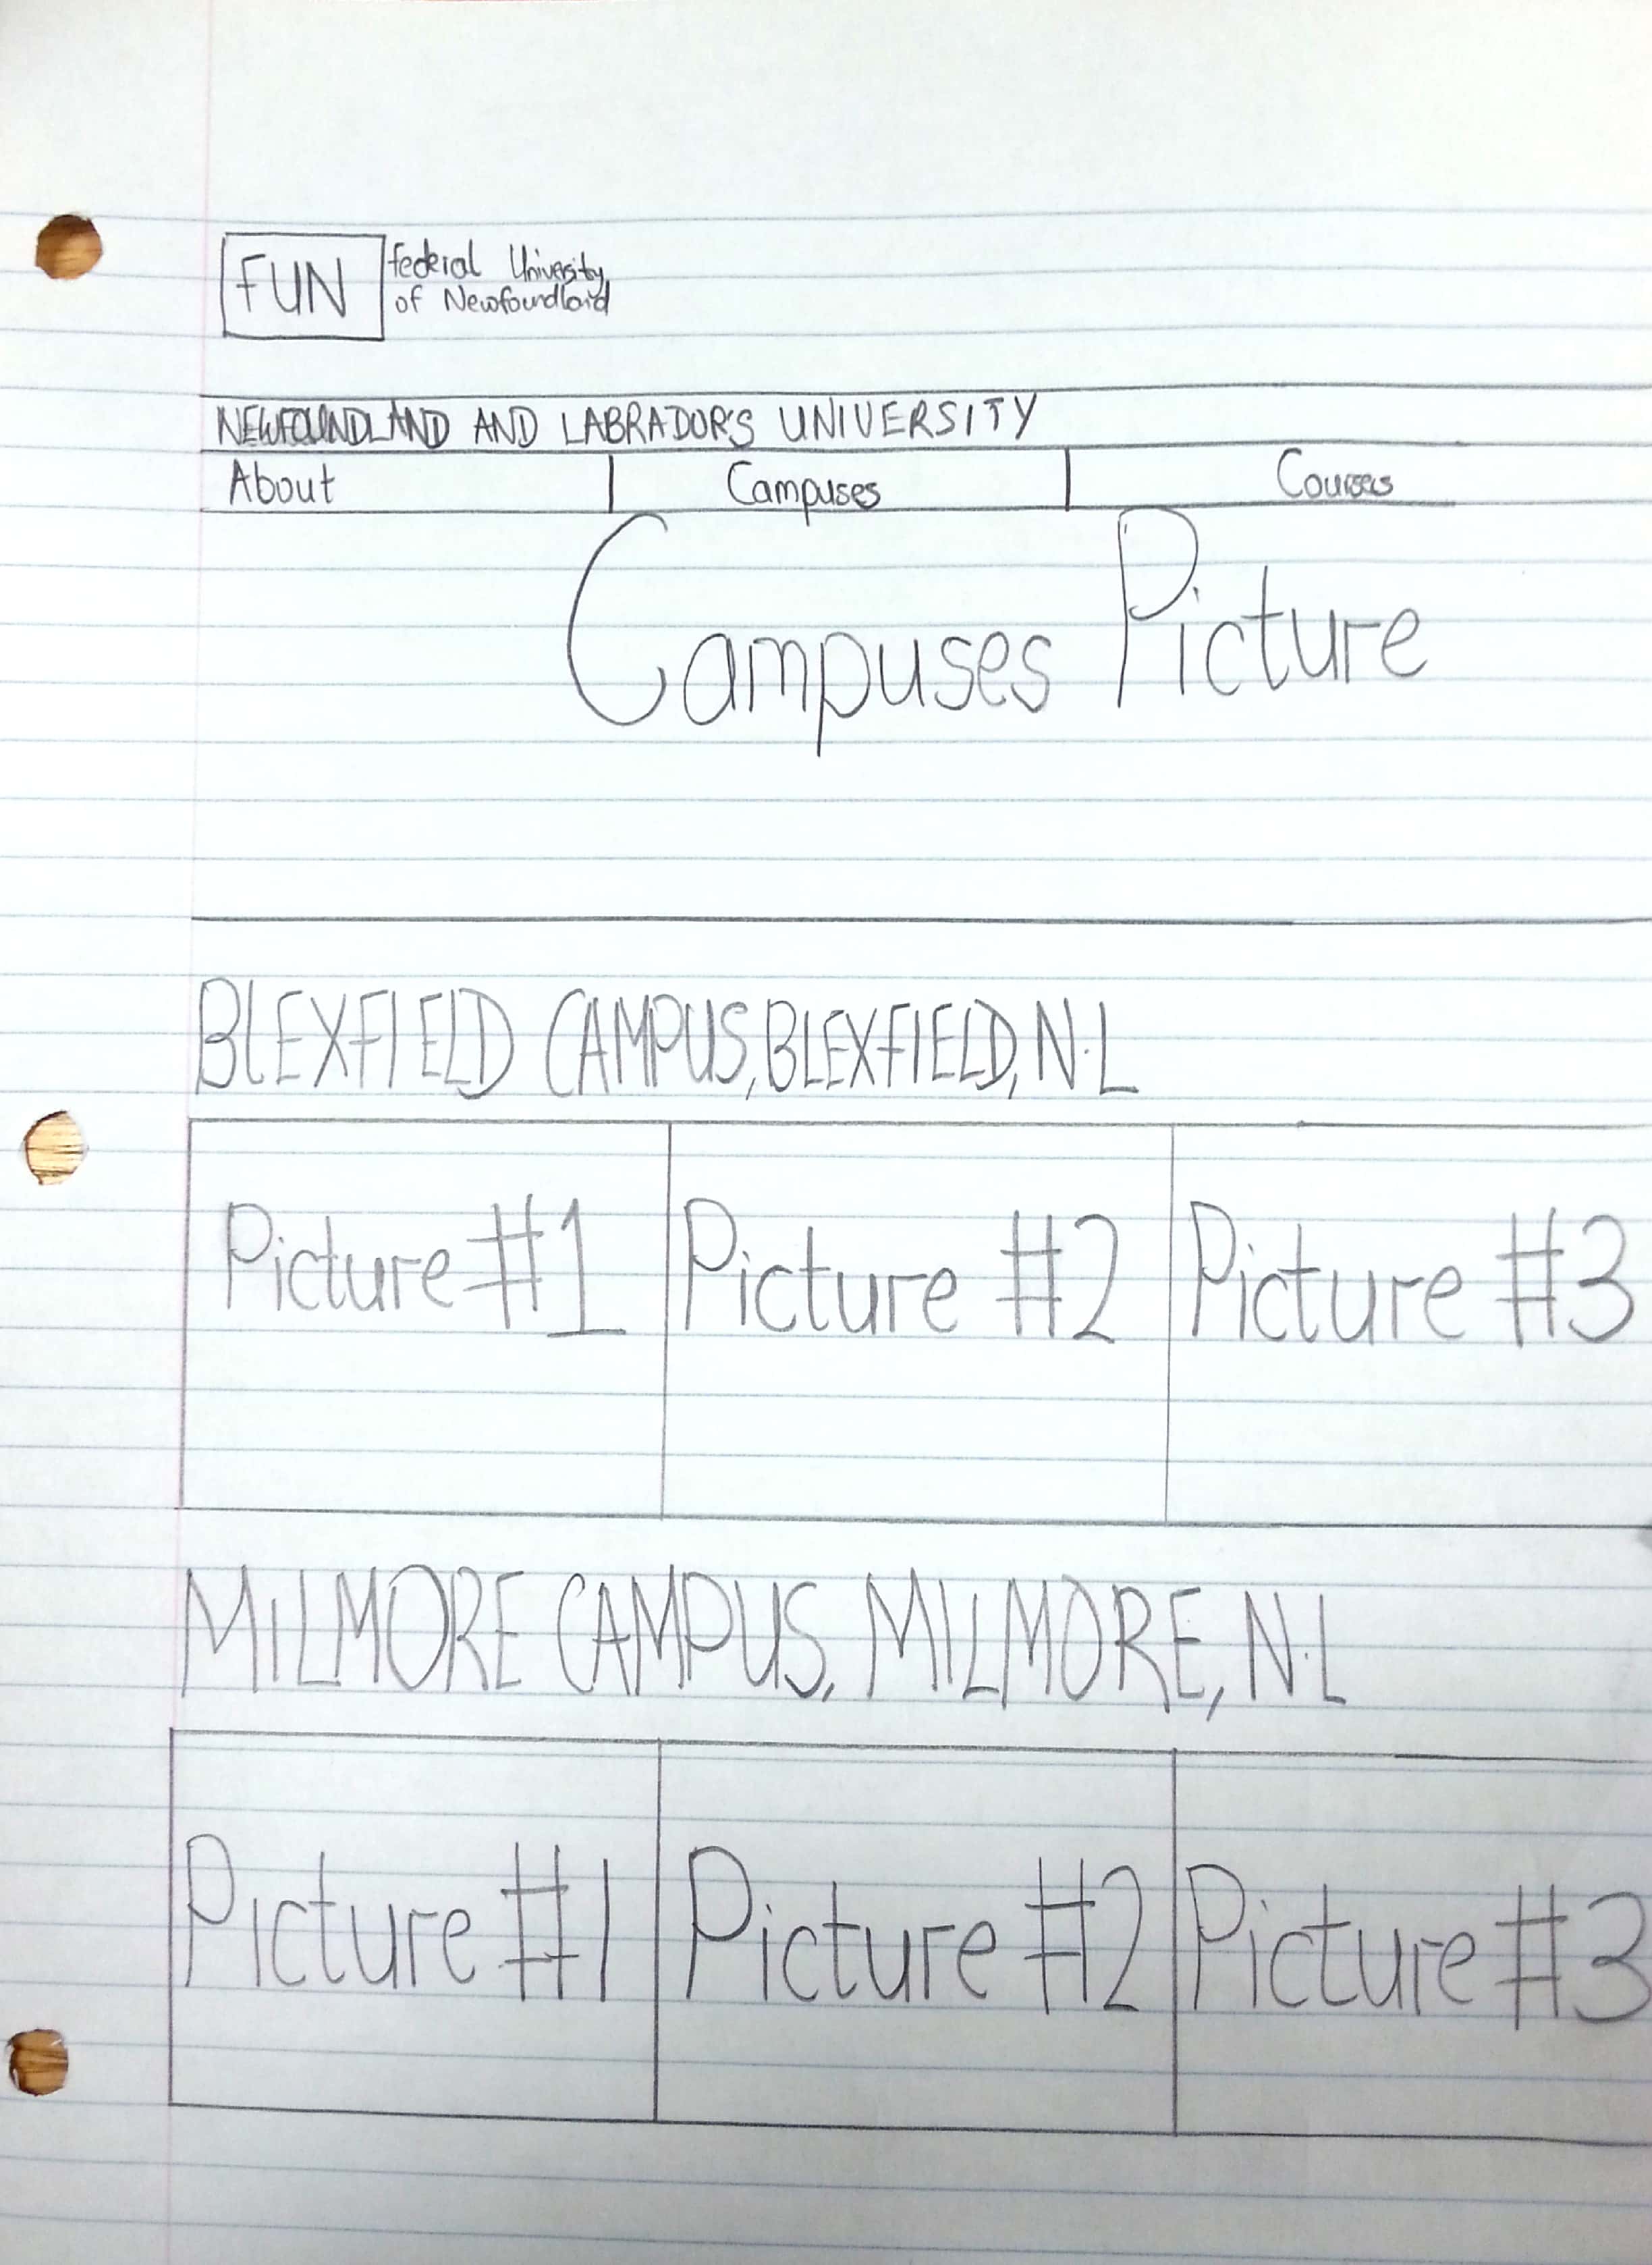 FUN
Federal University
of Newfoundland
NEWFOUNDLAND AND LABRADOR'S UNIVERSITY
About Campuses Courses
Campuses Picture
BLEXFIELD CAMPUS, BLEXFIELD, N.L
Picture #1 Picture #2 Picture #3
MILMORE CAMPUS, MILMORE, N.L
Picture #1 Picture #2 Picture #3